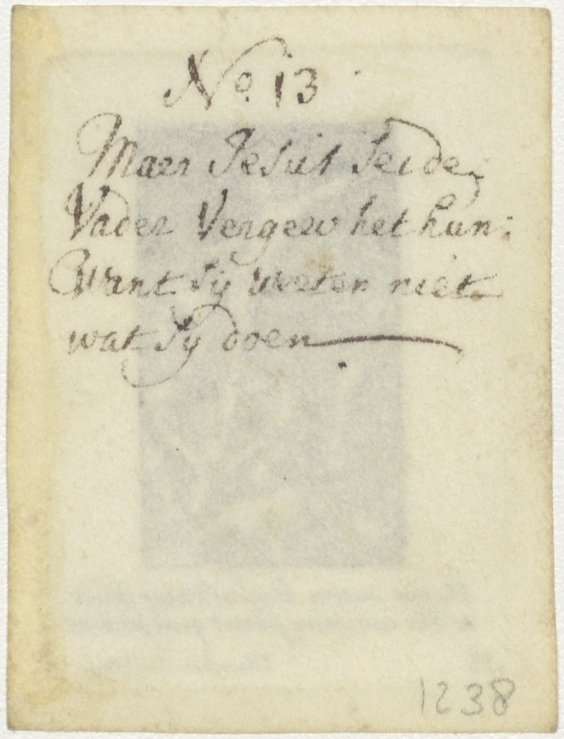 No. 13
Maer Jesus seide
Vader Vergew het hun:
Want sÿ weten niet
wat sÿ doen
1238